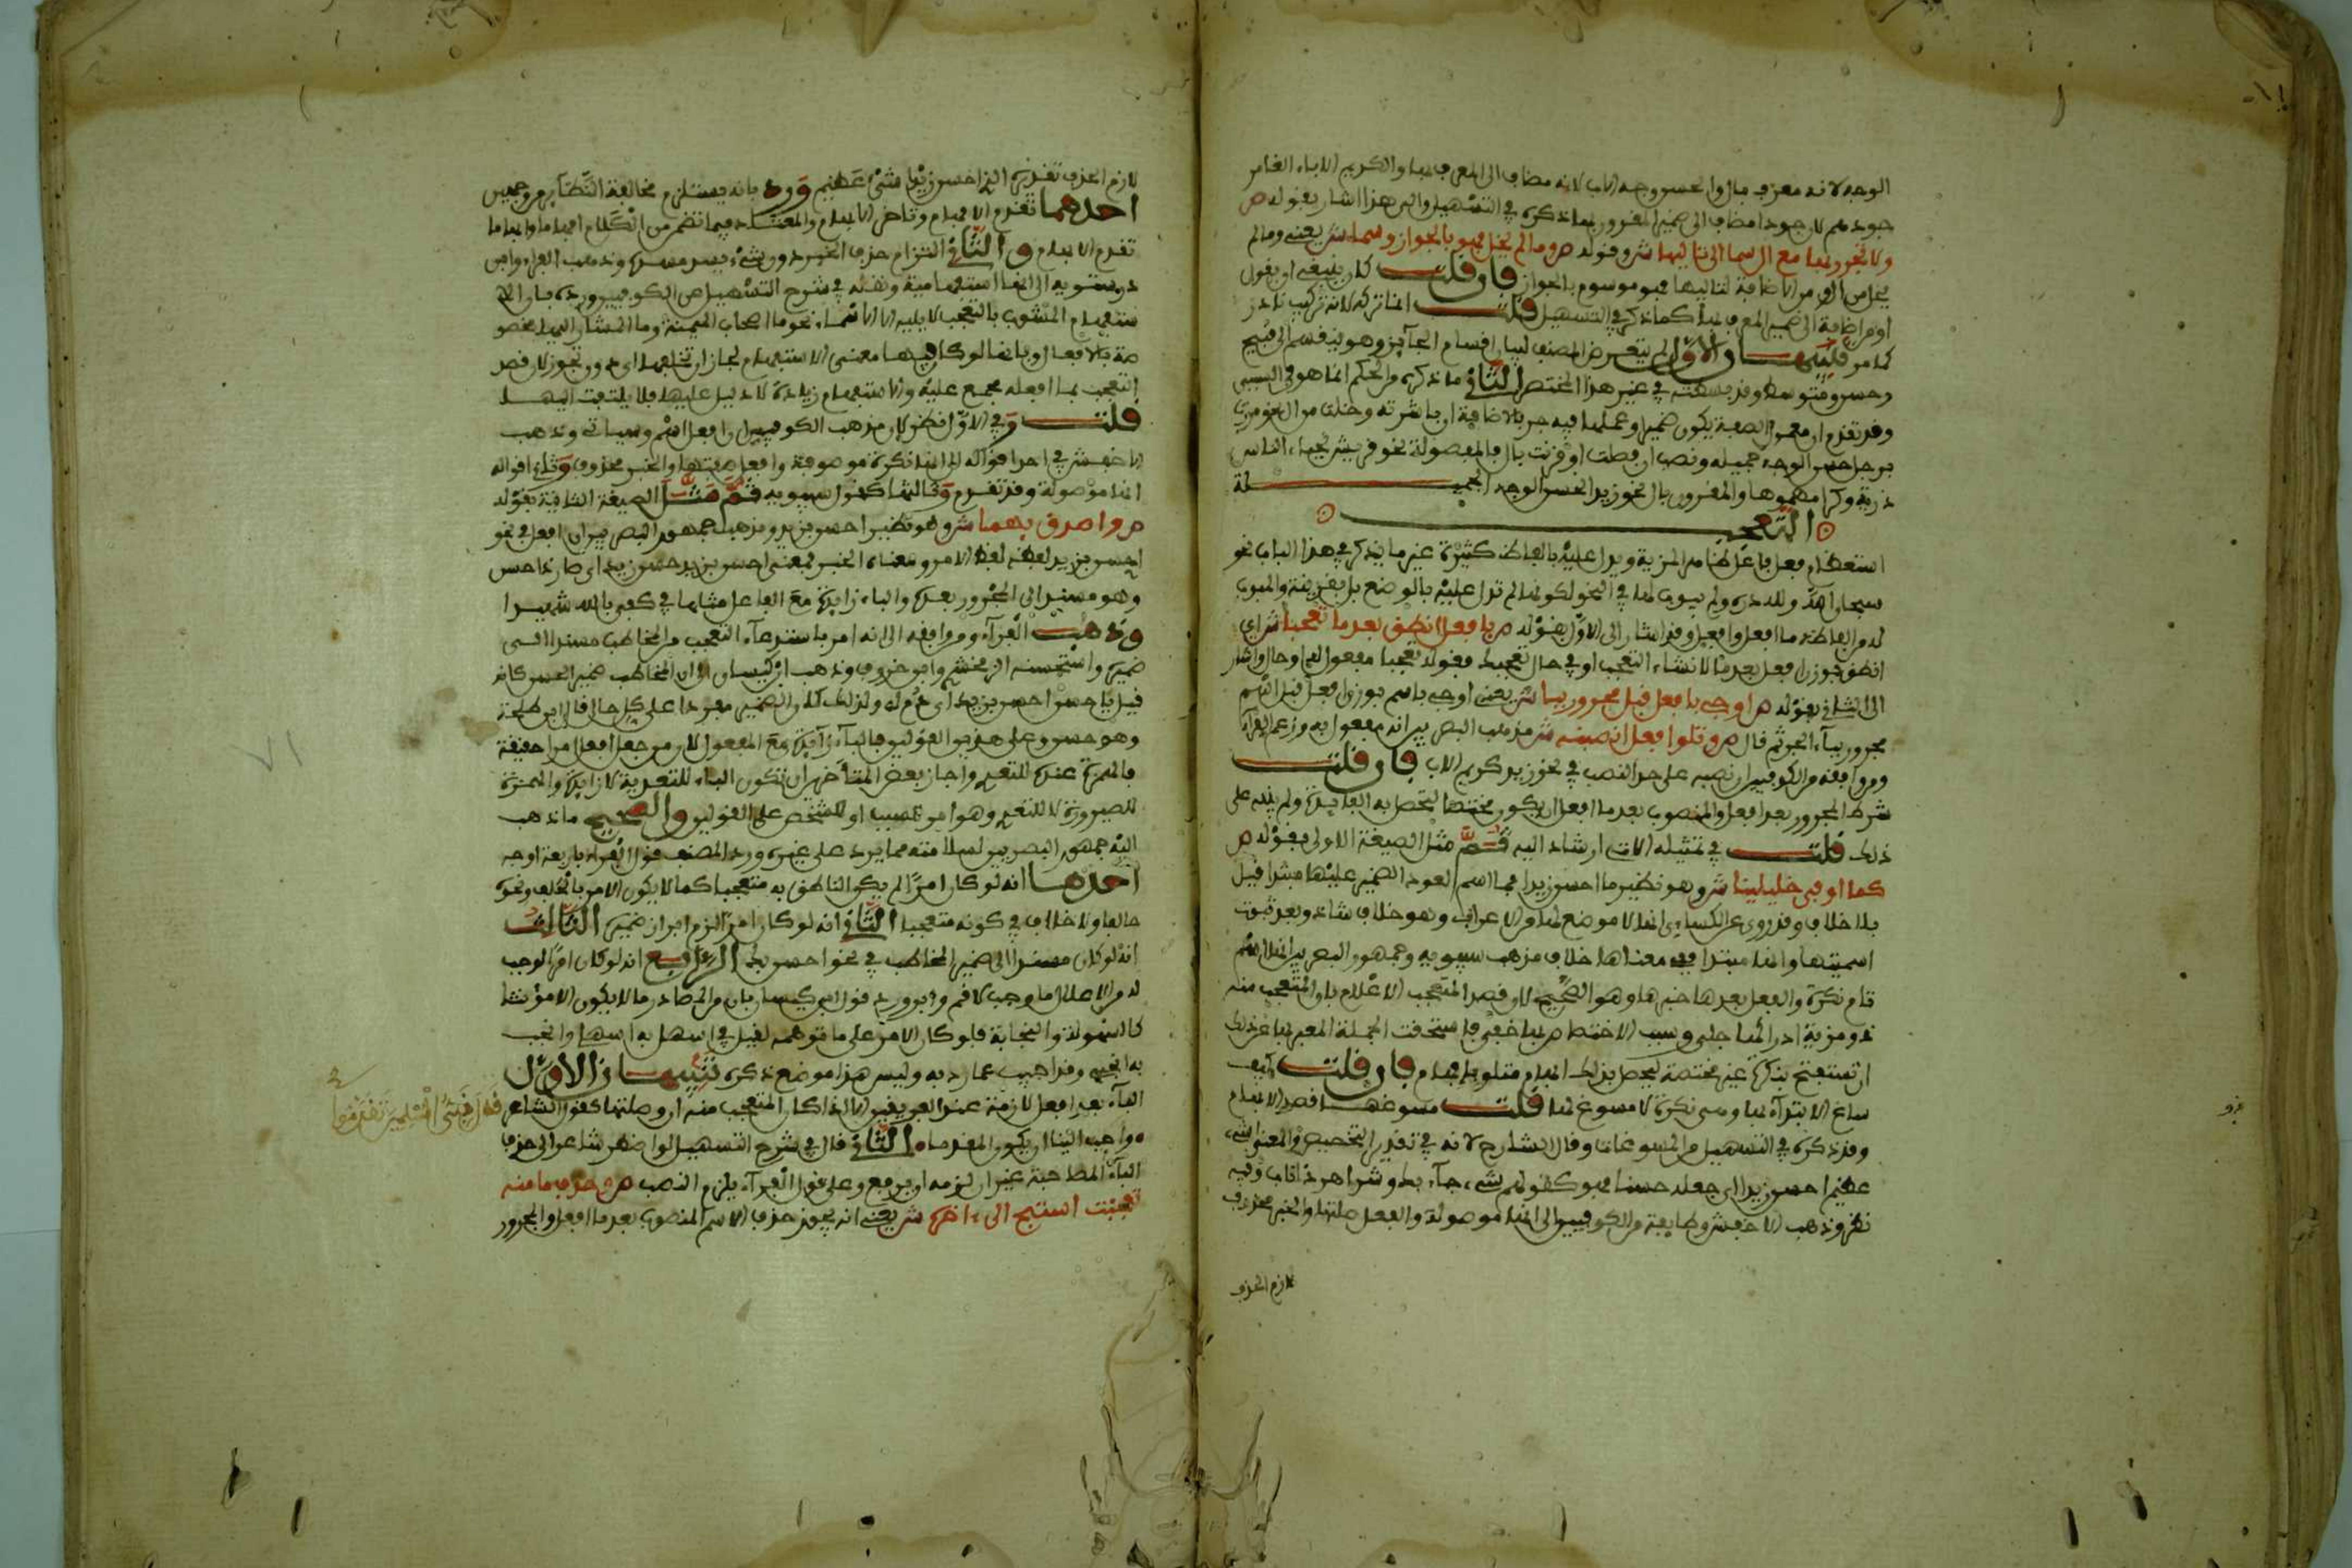 الوجه لانه معرف بال والحسن وجه الاب لانه مضاف الى المعرف بها والكريم الاباء الغامر
جودهم لان جودا مضاف الى ضمير المقرون بها ذكره في التسهيل والى هذا اشار بقوله ص
ولا تجرر بها مع ال سما الى تاليها ش وقوله ص وما لم يخل فهو بالجواز وسما ش يعني وما لم
يخل من ال او من الاضافة لتاليها فهو موسوم بالجواز فان قلت كان ينبغي ان يقول
او من اضافة الى ضمير المعرف بها كما ذكر في التسهيل قلت انما تركه لانه تركيب نادر
كما مر تنبيهان الاول لم يتعرض المصنف لبيان اقسام الجائز وهو ينقسم الى قبيح
وحسن ومتوسط وقد بسطته في غير هذا المختصر الثاني ما ذكره من الحكم انما هو في السببي
وقد تقدم ان معمول الصفة يكون ضميرا وعملها فيه جر بالاضافة ان باشرته وخلت من ال نحو مررت
برجل حسن الوجه جميله ونصب ان فصلت او قرنت بال فالمفصولة نحو قريش نجباء الناس
ذرية وكرامهموها والمقرونة بال نحو زيد الحسن الوجه الجميله
التعجب
استعظام فعل فاعل ظاهر المزية ويدل عليه بالفاظ كثيرة غير ما يذكر في هذا الباب نحو
سبحان الله ولله دره ولم يبوب لها في النحو لكونها لم تدل عليه بالوضع بل بقرينة والمبوب
له من الفاظه ما افعل وافعل وقد اشار الى الاول بقوله ص بافعل انطق بعد ما تعجبا ش اي
انطق بوزن افعل بعد ما لانشاء التعجب او في حال تعجبك فقوله تعجبا مفعول له او حال واشار
الى الثاني بقوله ص او جئ بافعل قبل مجرور ببا ش يعني او جئ باسم بوزن افعل قبل اسم
مجرور بباء الجر ثم قال ص وتلو افعل انصبنه ش مذهب البصريين انه مفعول به وزعم الفراء
ومن وافقه من الكوفيين ان نصبه على حد النصب في نحو زيد كريم الاب فان قلت
شرط المجرور بعد افعل والمنصوب بعد ما افعل ان يكون مختصا لتحصل به الفائدة ولم ينبه على
ذلك قلت في تمثيله الاتي ارشاد اليه ثم مثل الصيغة الاولى بقوله ص
كما اوفى خليلينا ش وهو نظير ما احسن زيدا فما اسم لعود الضمير عليها مبتدا قيل
بلا خلاف وقد روى عن الكسائي انها لا موضع لها من الاعراب وهو خلاف شاذ وبعد ثبوت
اسميتها وانها مبتدا ففي معناها خلاف مذهب سيبويه وجمهور البصريين انها اسم
تام نكرة والفعل بعدها خبرها وهو الصحيح لان قصد المتعجب الاعلام بان المتعجب منه
ذو مزية ادراكها جلي وسبب الاختصاص بها خفي فاستحقت الجملة المعبر بها عن ذلك
ان تستفتح بنكرة غير مختصة ليحصل بذلك ابهام متلو بافهام فان قلت كيف
ساغ الابتداء بها وهي نكرة لا مسوغ لها قلت مسوغها قصد الابهام
وقد ذكره في التسهيل من المسوغات وقال الشارح لانه في تقدير التخصيص والمعنى شيء
عظيم احسن زيدا اي جعله حسنا فهو كقولهم شيء جاء بك وشر اهر ذا ناب وفيه
نظر وذهب الاخفش وطائفة من الكوفيين الى انها موصولة والفعل صلتها والخبر محذوف
لازم الحذف
لازم الحذف تقديره الذي احسن زيدا شيء عظيم ورد بانه يستلزم مخالفة النظائر من وجهين
احدهما تقدم الافهام وتاخر الابهام والمعتاد فيما تضمن من الكلام افهاما وابهاما
تقدم الابهام والثاني التزام حذف الخبر دون شيء يسد مسده وذهب الفراء وابن
درستويه الى انها استفهامية ونقله في شرح التسهيل عن الكوفيين ورده بان الا
ستفهام المشوب بالتعجب لا يليه الا الاسماء نحو ما اصحاب الميمنة وما المشار اليها مخصو
صة بالافعال وبانها لو كان فيها معنى الاستفهام لجاز ان تخلفها اي دون تجوز لان قصد
التعجب بما افعله مجمع عليه والاستفهام زيادة لا دليل عليها فلا يلتفت اليها
قلت وفي الاول نظر لان مذهب الكوفيين ان افعل اسم وسياتي وذهب
الاخفش في احد اقواله الى انها نكرة موصوفة وافعل صفتها والخبر محذوف وثاني اقواله
انها موصولة وقد تقدم وثالثها كقول سيبويه ثم مثل الصيغة الثانية بقوله
ص واصدق بهما ش وهو نظير احسن بزيد ومذهب جمهور البصريين ان افعل في نحو
احسن بزيد لفظه لفظ الامر ومعناه الخبر فمعنى احسن بزيد حسن زيد اي صار ذا حسن
وهو مسند الى المجرور بعده والباء زائدة مع الفاعل مثلها في كفى بالله شهيدا
وذهب الفراء ومن وافقه الى انه امر باستدعاء التعجب من المخاطب مسندا الى
ضميره واستحسنه الزمخشري وابن خروف وذهب ابن كيسان الى ان المخاطب ضمير الحسن كانه
قيل يا حسن احسن بزيد اي دم به ولذلك كان الضمير مفردا على كل حال قال ابن طلحة
وهو حسن وعلى هذين القولين فالباء زائدة مع المفعول لان من جعل افعل امرا حقيقة
فالهمزة عنده للتعدية واجاز بعض المتاخرين ان تكون الباء للتعدية لا زائدة والهمزة
للصيرورة لا للتعدية وهو امر للسبب او للشخص على القولين والصحيح ما ذهب
اليه جمهور البصريين لسلامته مما يرد على غيره ورد المصنف قول الفراء باربعة اوجه
احدها انه لو كان امرا لم يكن الناطق به متعجبا كما لا يكون الامر بالحلف ونحوه
حالفا ولا خلاف في كونه متعجبا الثاني انه لو كان امرا لزم ابراز ضميره الثالث
انه لو كان مسندا الى ضمير المخاطب في نحو احسن بك الرابع انه لو كان امرا لوجب
له من الاعلال ما وجب لاقم وابن ورد قول ابن كيسان بان من المصادر ما لا يكون الا مؤنثا
كالسهولة والنجابة فلو كان الامر على ما توهمه لقيل في اسهل به اسهلي وانجب
به انجبي وقد اجيب عما رد به وليس هذا موضع ذكره تنبيهان الاول
الباء بعد افعل لازمة عند الفريقين الا اذا كان المتعجب منه ان وصلتها كقول الشاعر
واحبب الينا ان يكون المقدما الثاني قال في شرح التسهيل لو اضطر شاعر الى حذف
الباء المصاحبة غير ان لزمه ان يرفع وعلى قول الفراء يلزم النصب ص وحذف ما منه
تعجبت استبح الى ءاخره ش يعني انه يجوز حذف الاسم المنصوب بعد ما افعل والمجرور